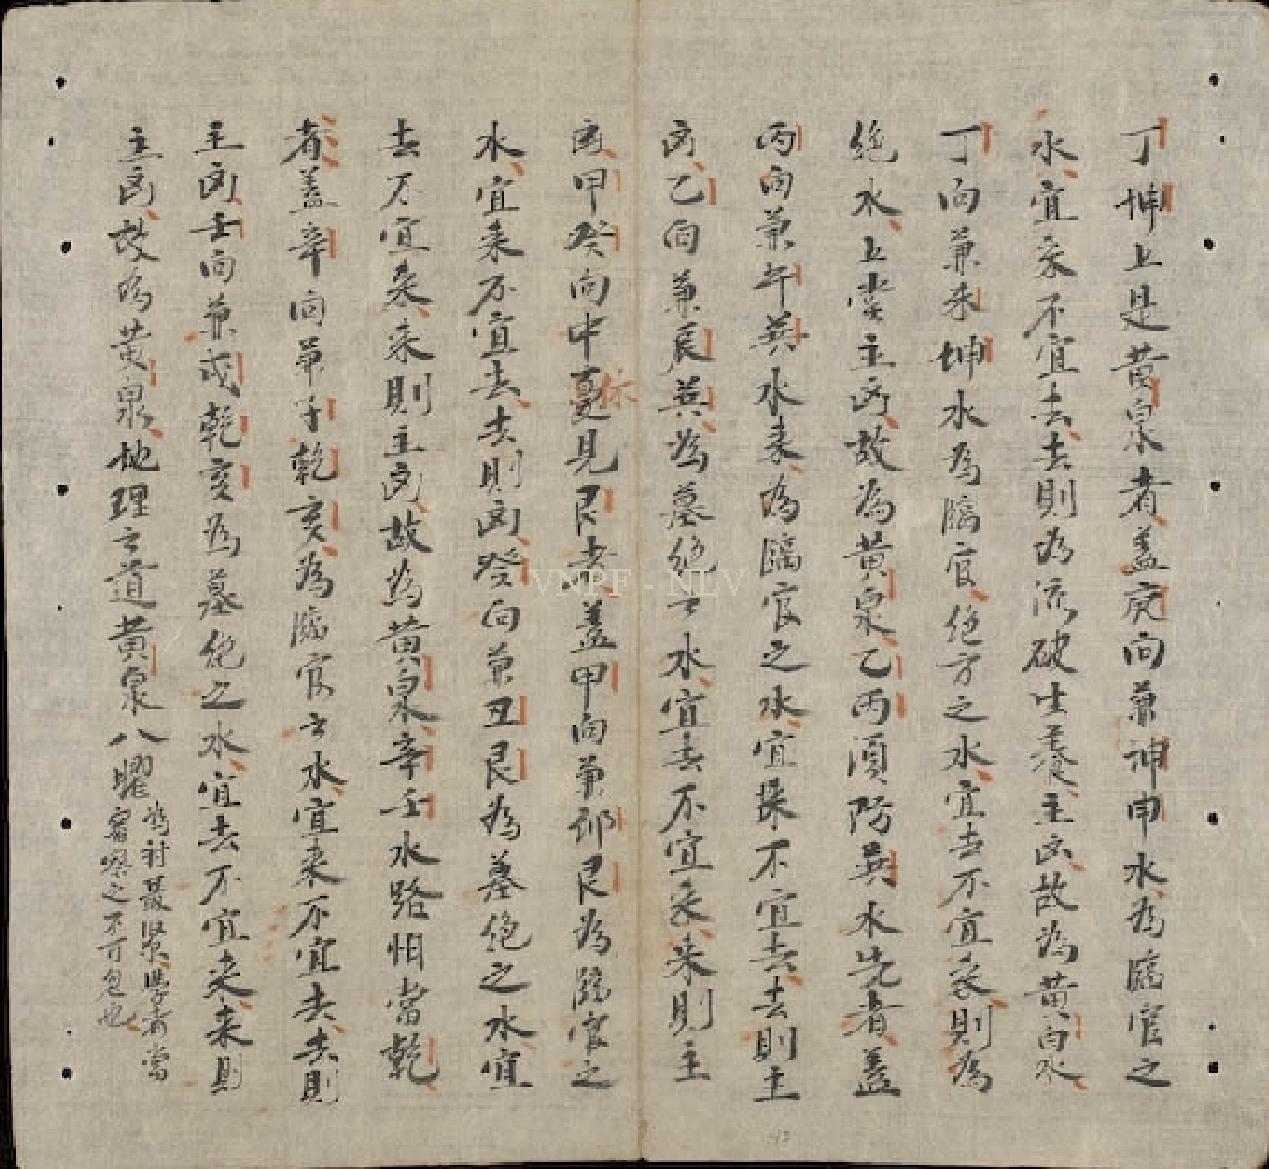 丁坤上是黄泉者蓋庚向兼坤申水為臨官之
水宜来不宜去去則為流破生養主凶故為黄白水
丁向兼未坤水為臨官絶方之水宜去不宜来則為
絶水上堂主凶故為黄泉乙丙須防巽水先者蓋
丙向兼午巽水来為臨官之水宜採不宜去去則主
凶乙向兼辰巽為墓絶之水宜去不宜来来則主
凶甲癸向中憂見艮者蓋甲向兼卯艮為臨官之
水宜来不宜去去則凶癸向兼丑艮為墓絶之水宜
去不宜来来則主凶故為黄泉辛壬水路怕當乾
者蓋辛向兼子乾亥為臨官之水宜来不宜去去則
主凶壬向兼戌乾亥為墓絶之水宜去不宜来来則
主凶故為黄泉地理之道黄泉八曜
為村最緊學者當
審察之不可忽也
VNPF - NLV